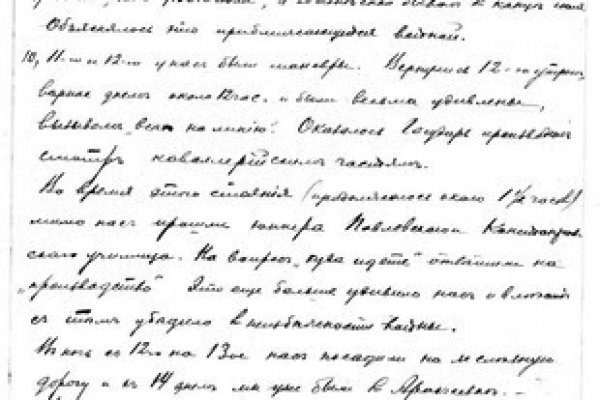 Объяснялось это приближающейся войной.
10, 11-го и 12-го у нас были маневры. Вернулись 12-го утром,
вернее днем около 12 час. и были весьма удивлены,
вызовом „всех на линию". Оказалось Государь производит
смотр кавалерийским частям.
Во время этого стояния (продолжалось около 1½ часов)
мимо нас прошли юнкера Павловского и Константиновского
училища. На вопрос „куда идете" ответили на
„производство" Это еще больше удивило нас и
с тем убедило в неизбежности войны.
В ночь с 12го на 13ое нас посадили на железную
дорогу и в 14 днем мы уже были в